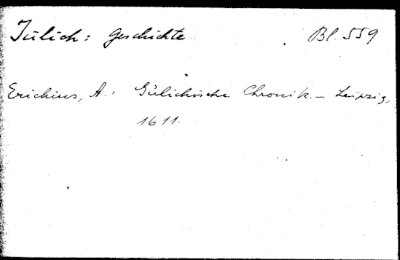 Jülich: Geschichte Bl 559
Erichius, A.: Gülichische Chronik. - Leipzig,
1611.